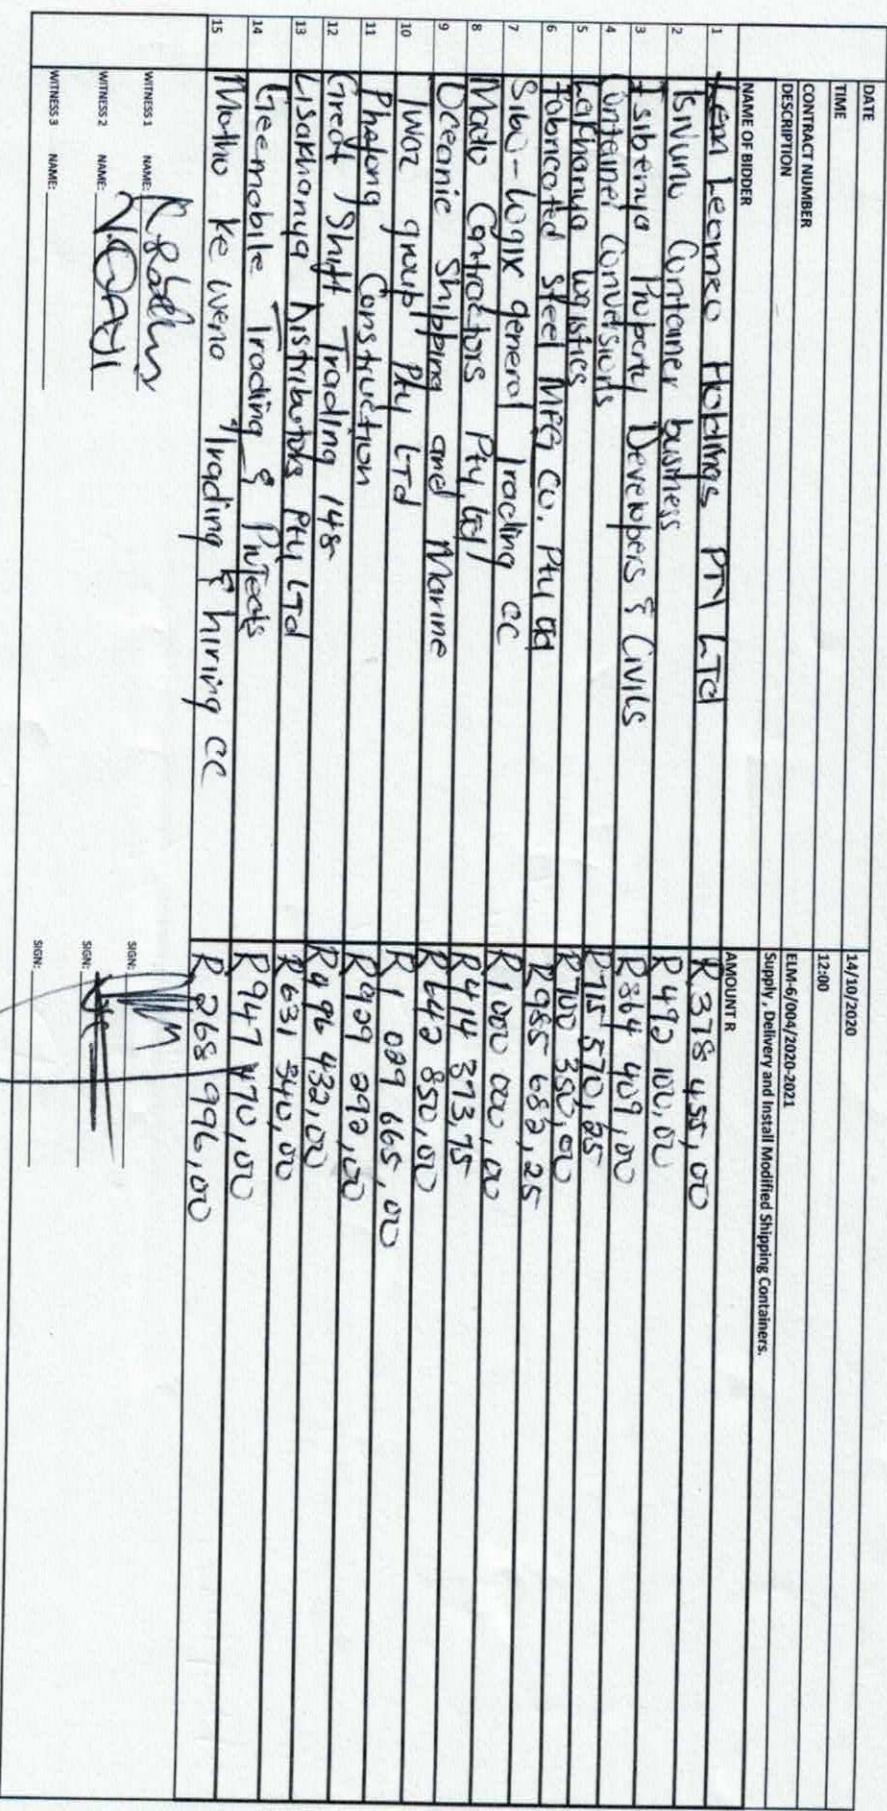 DATE 14/10/2020
TIME 12:00
CONTRACT NUMBER ELM-6/004/2020-2021
DESCRIPTION Supply , Delivery and Install Modified Shipping Containers.
NAME OF BIDDER AMOUNT R
1 Leomeo Holdings PTY LTd R 378 455,00
2 Container business R 492 100,00
3 Isibenya Property Developers & Civils R 864 409,00
4 Container Conversions R 715 570,25
5 Lakhanya Logistics R 700 350,00
6 Fabricated Steel MFG Co. Pty Ltd R 985 682,25
7 Sibu-Logix general Trading CC R 1 000 000,00
8 Mado Contractors Pty Ltd R 414 373,75
9 Oceanic Shipping and Marine R 642 850,00
10 group Pty LTd R 1 029 665,00
11 Phatong Construction R 929 292,00
12 Great Shift Trading 148 R 996 432,00
13 Lisakhanya Distributors Pty LTd R 631 340,00
14 Geemobile Trading & Projects R 947 470,00
15 Motho ke Weno Trading & hiring CC R 268 996,00
WITNESS 1 NAME: SIGN:
WITNESS 2 NAME: SIGN:
WITNESS 3 NAME: SIGN: